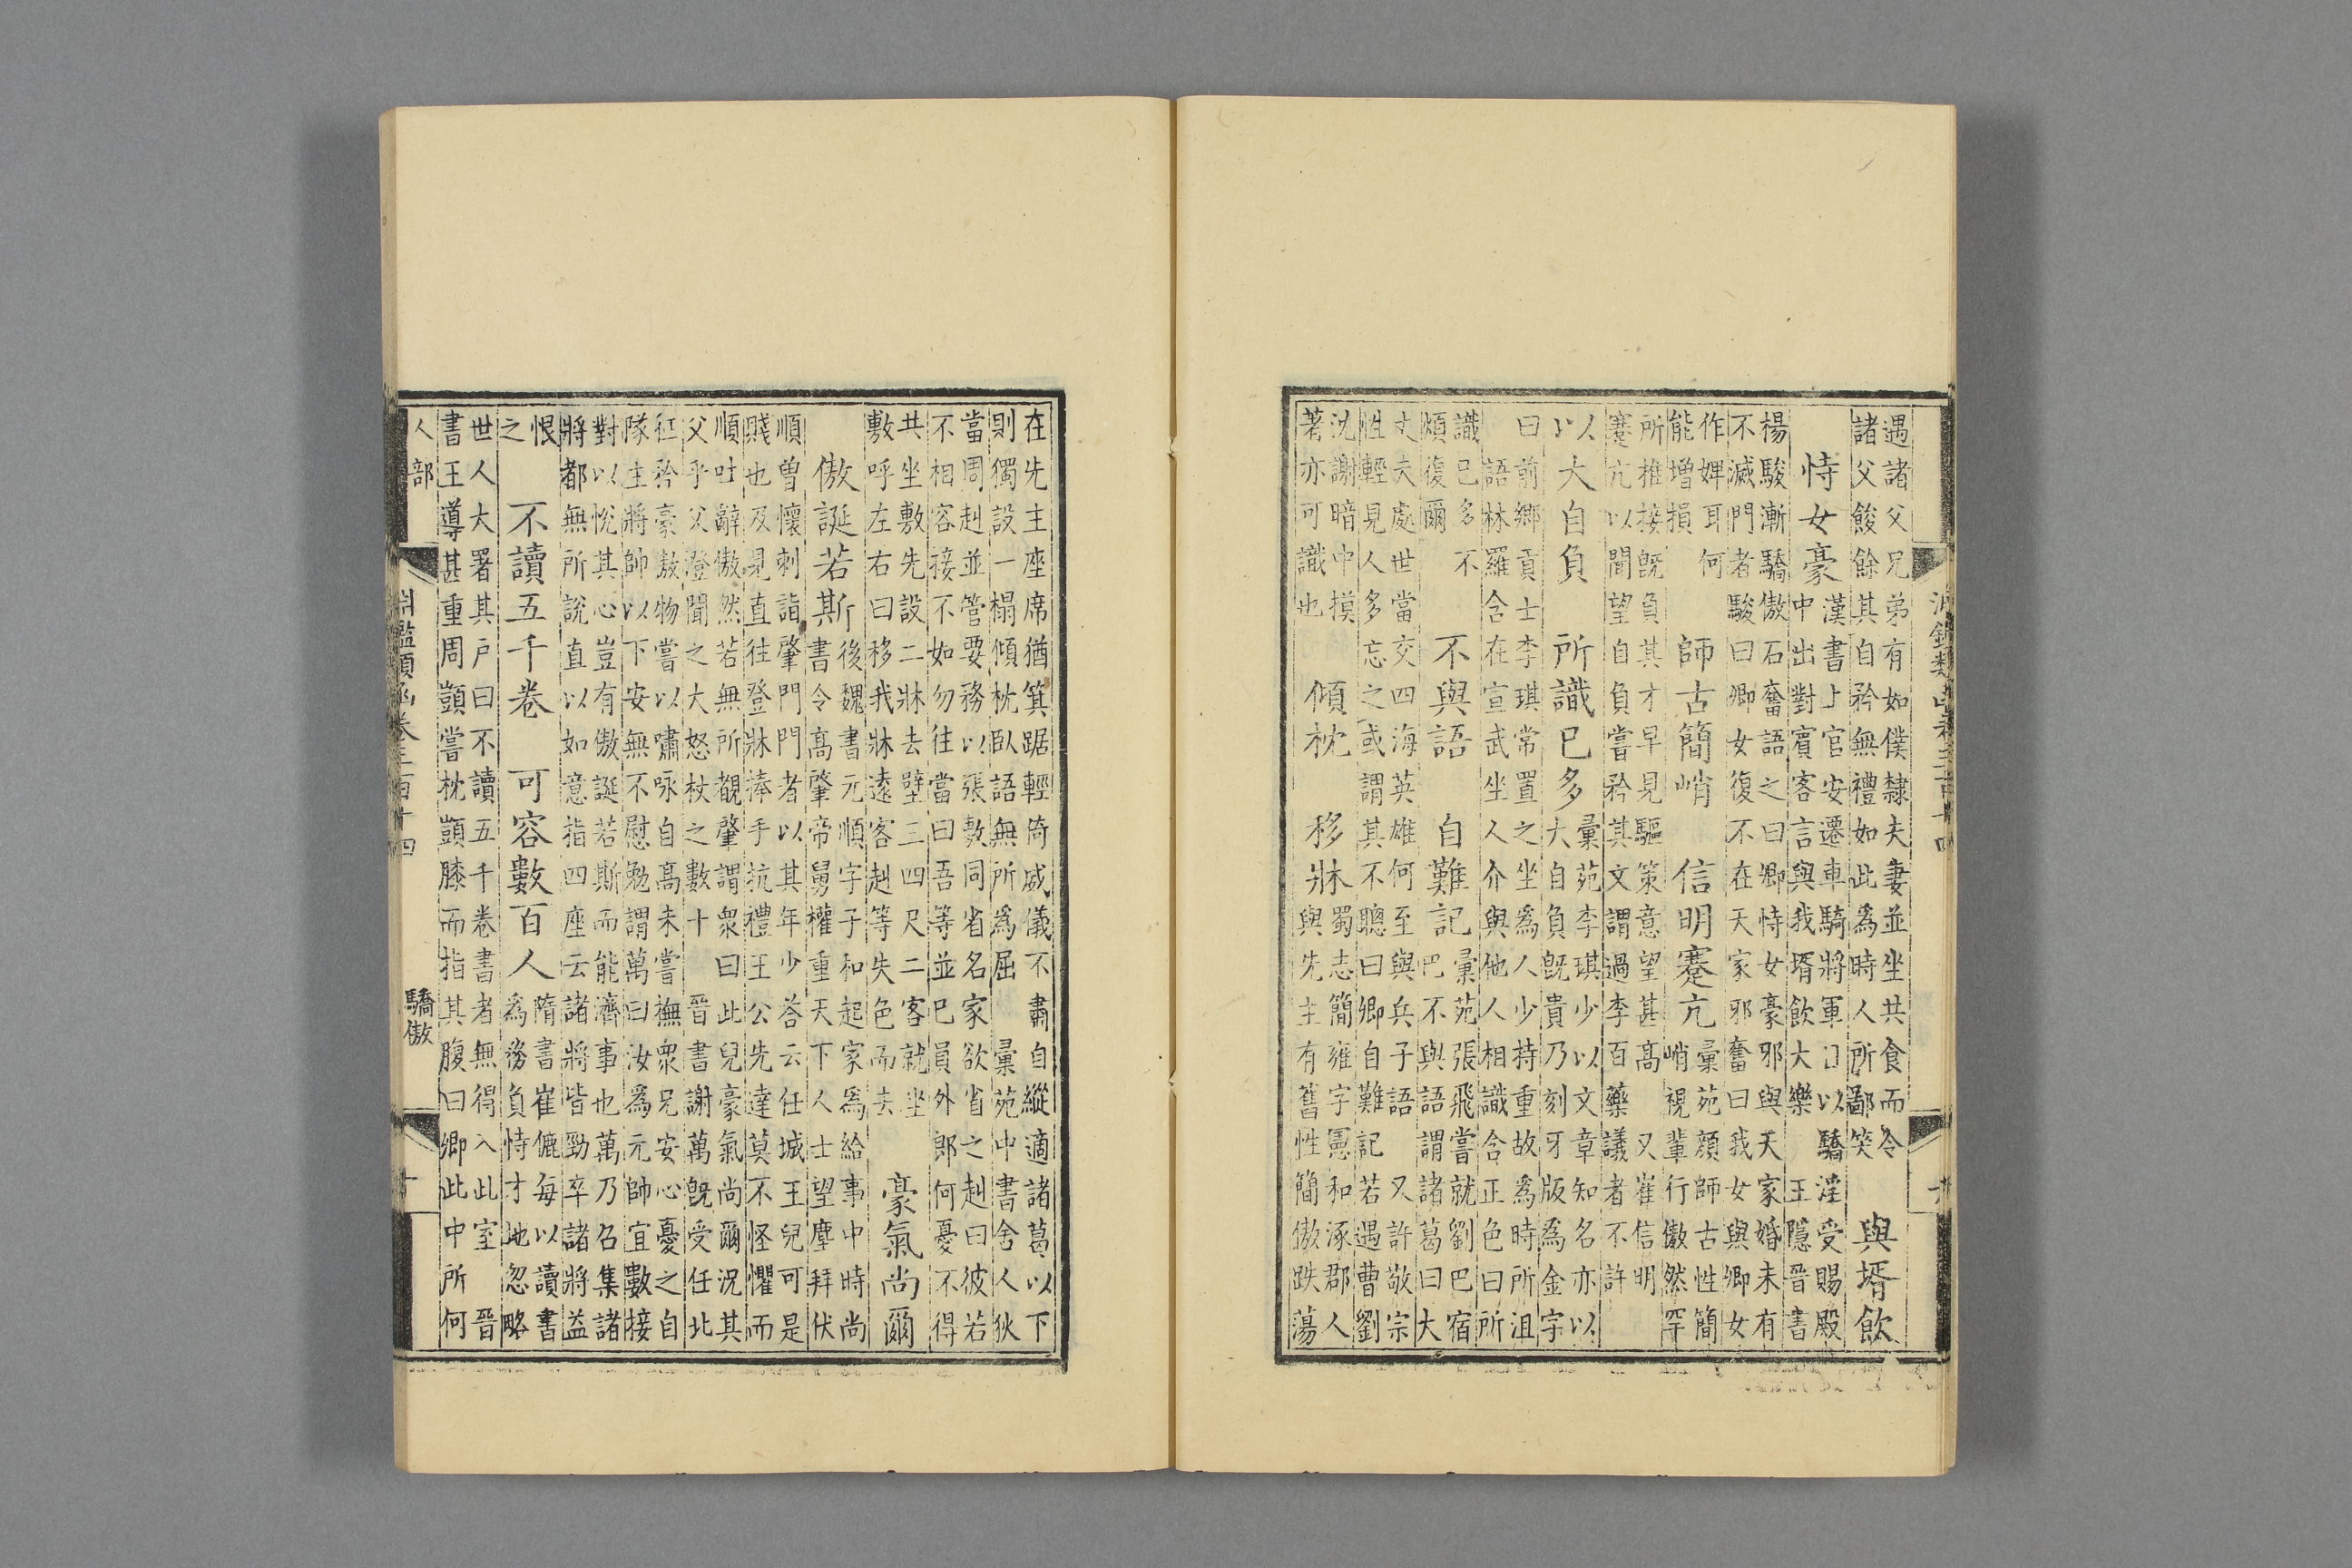 遇諸父兄弟有如僕隸夫妻並坐共食而令
諸父餕餘其自矜無禮如此為時人所鄙笑
與壻飲
恃女豪
漢書上官安遷車騎將軍日以驕淫受賜殿
中出對賓客言與我壻飲大樂 王隱晉書
楊駿漸驕傲石奮語之曰卿恃女豪邪與天家婚未有
不滅門者駿曰卿女復不在天家邪奮曰我女與卿女
作婢耳何
能增損
師古簡峭 信明蹇亢
彙苑顔師古性簡
峭視輩行傲然罕
所推接旣負其才早見驅策意望甚高 又崔信明
蹇亢以聞望自負嘗矜其文謂過李百藥議者不許
以大自負 所識已多
彙苑李琪少以文章知名亦以
大自負旣貴乃刻牙版為金字
曰前鄉貢士李琪常置之坐為人少持重故為時所沮
語林羅含在宣武坐人介與他人相識含正色曰所
識已多不
煩復爾
不與語 自難記
彙苑張飛嘗就劉巴宿
巴不與語謂諸葛曰大
丈夫處世當交四海英雄何至與兵子語 又許敬宗
性輕見人多忘之或謂其不聰曰卿自難記若遇曹劉
沈謝暗中摸
著亦可識也
傾枕 移牀
蜀志簡雍字憲和涿郡人
與先主有舊性簡傲跌蕩
在先主座席猶箕踞輕倚威儀不肅自縱適諸葛以下
則獨設一榻傾枕臥語無所為屈 彙苑中書舍人狄
當周赳並管要務以張敷同省名家欲省之赳曰彼若
不相容接不如勿往當曰吾等並已員外郎何憂不得
共坐敷先設二牀去壁三四尺二客就坐
敷呼左右曰移我牀遠客赳等失色而去
豪氣尚爾
傲誕若斯
後魏書元順字子和起家為給事中時尚
書令高肇帝舅權重天下人士望塵拜伏
順曾懷刺詣肇門門者以其年少荅云任城王兒可是
賤也及見直往登牀捧手抗禮王公先達莫不怪懼而
順吐辭傲然若無所覩肇謂衆曰此兒豪氣尚爾況其
父乎父澄聞之大怒杖之數十 晉書謝萬旣受任北
征矜豪傲物嘗以嘯咏自高未嘗撫衆兄安心憂之自
隊主將帥以下安無不慰勉謂萬曰汝為元帥宜數接
對以悅其心豈有傲誕若斯而能濟事也萬乃召集諸
將都無所說直以如意指四座云諸將皆勁卒諸將益
恨
之
不讀五千卷 可容數百人
隋書崔儦每以讀書
為務負恃才地忽略
世人大署其戶曰不讀五千卷書者無得入此室 晉
書王導甚重周顗嘗枕顗膝而指其腹曰卿此中所何
人部 淵鑑類函卷三百十四 驕傲 十